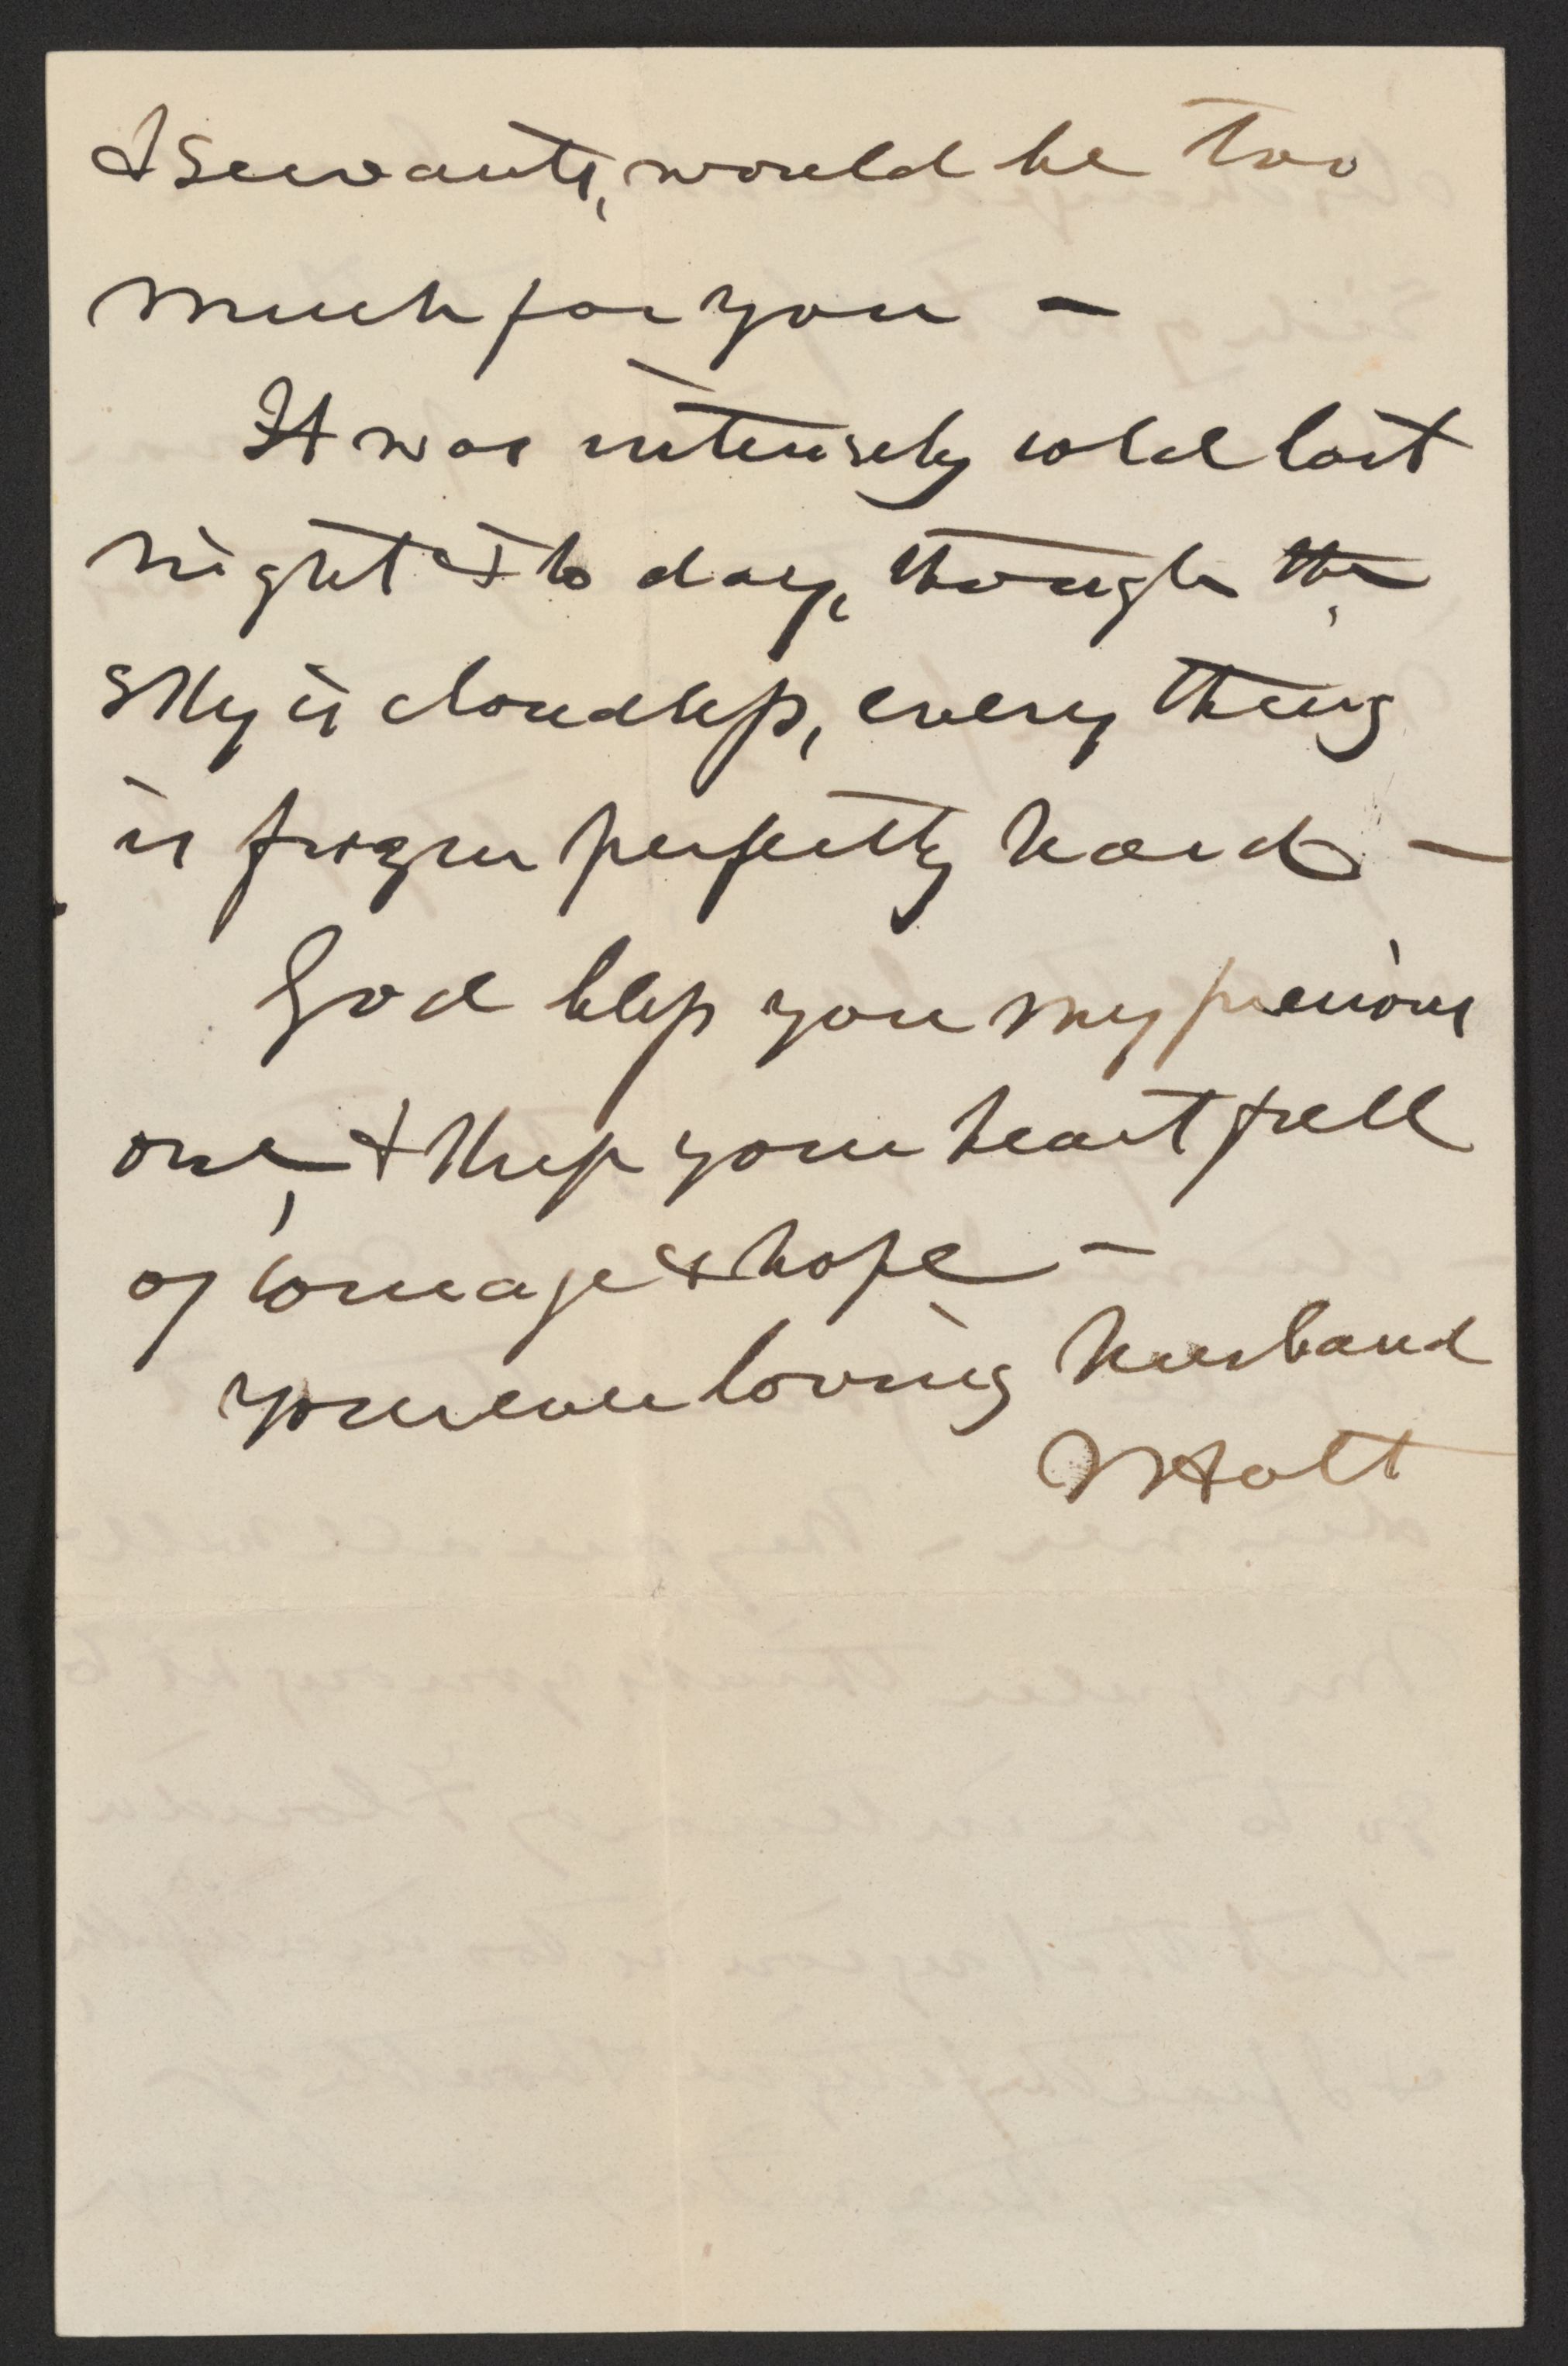 & servants, would be too
much for you —
It was intensely cold last
night & to day, though the
sky is cloudless, every thing
is frozen perfectly hard —
God bless you my precious
one, & keep your heart full
of courage & hope —
your ever loving husband
J Holt